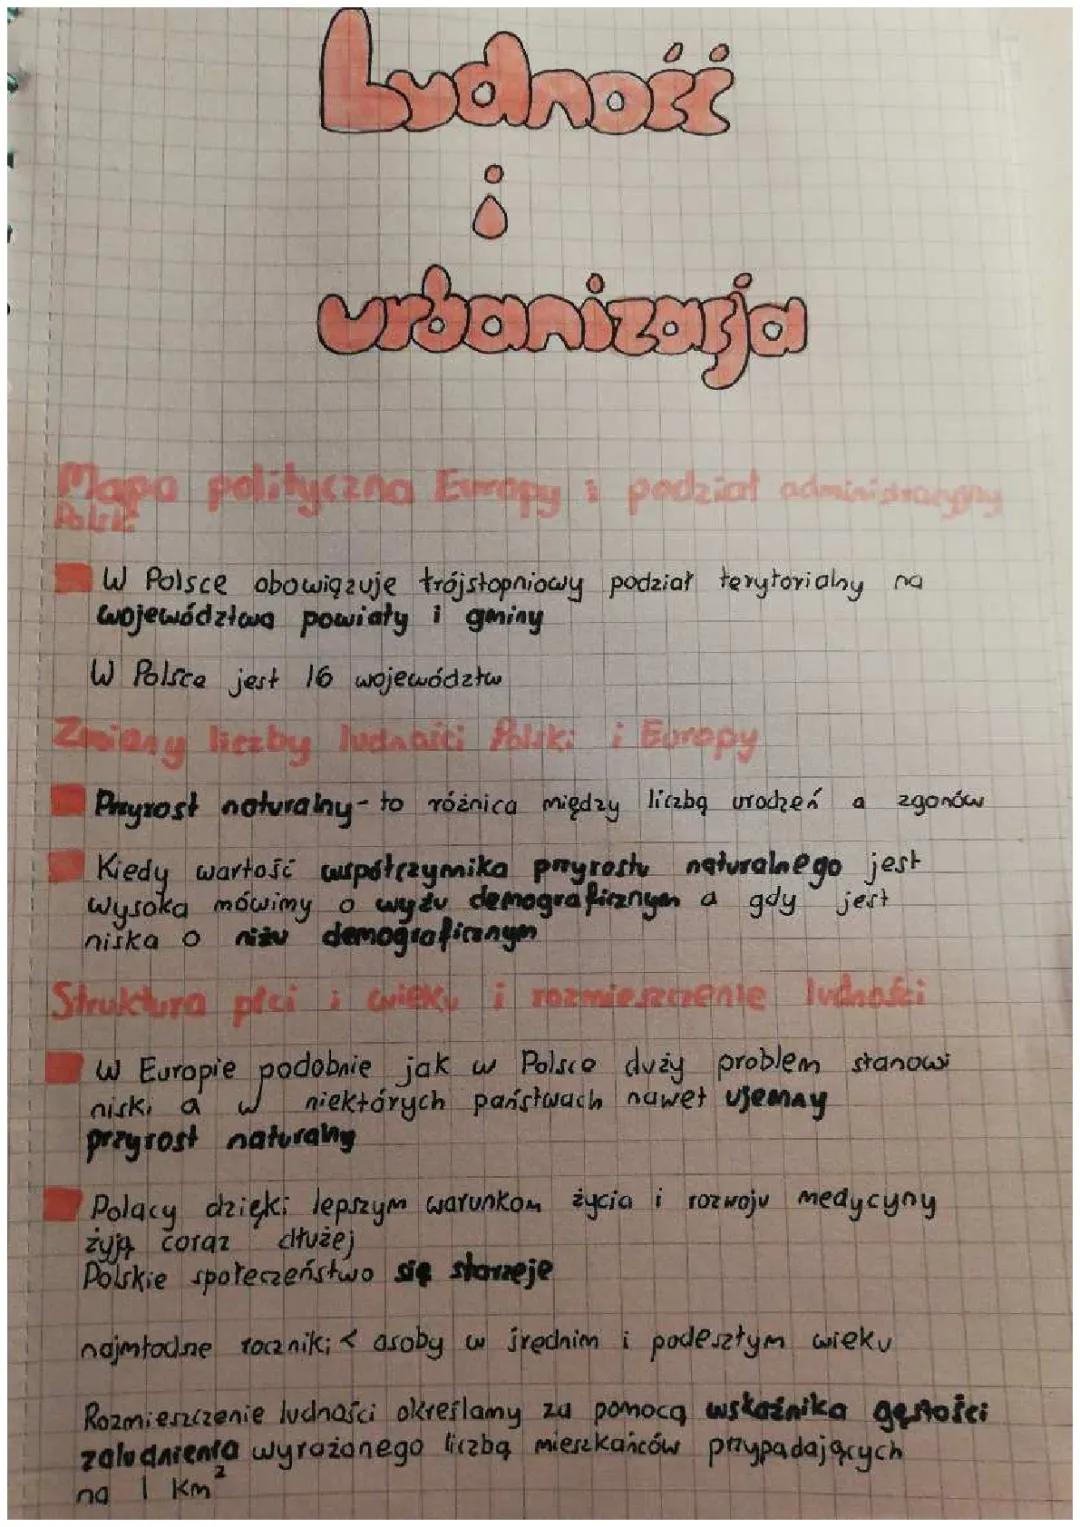 Ludność
i
urbanizacja
Mapa polityczna Europy i podział administracyjny
Polski
W Polsce obowiązuje trójstopniowy podział terytorialny na
województwa powiaty i gminy
W Polsce jest 16 województw
Zmiany liczby ludności Polski i Europy
Przyrost naturalny - to różnica między liczbą urodzeń a zgonów
Kiedy wartość współczynnika przyrostu naturalnego jest
wysoka mówimy o wyżu demograficznym a gdy jest
niska o niżu demograficznym
Struktura płci i wieku i rozmieszczenie ludności
W Europie podobnie jak w Polsce duży problem stanowi
niski a w niektórych państwach nawet ujemny
przyrost naturalny
Polacy dzięki lepszym warunkom życia i rozwoju medycyny
żyją coraz dłużej
Polskie społeczeństwo się starzeje
najmłodsze roczniki < osoby w średnim i podeszłym wieku
Rozmieszczenie ludności określamy za pomocą wskaźnika gęstości
zaludnienia wyrażanego liczbą mieszkańców przypadających
na 1 km²